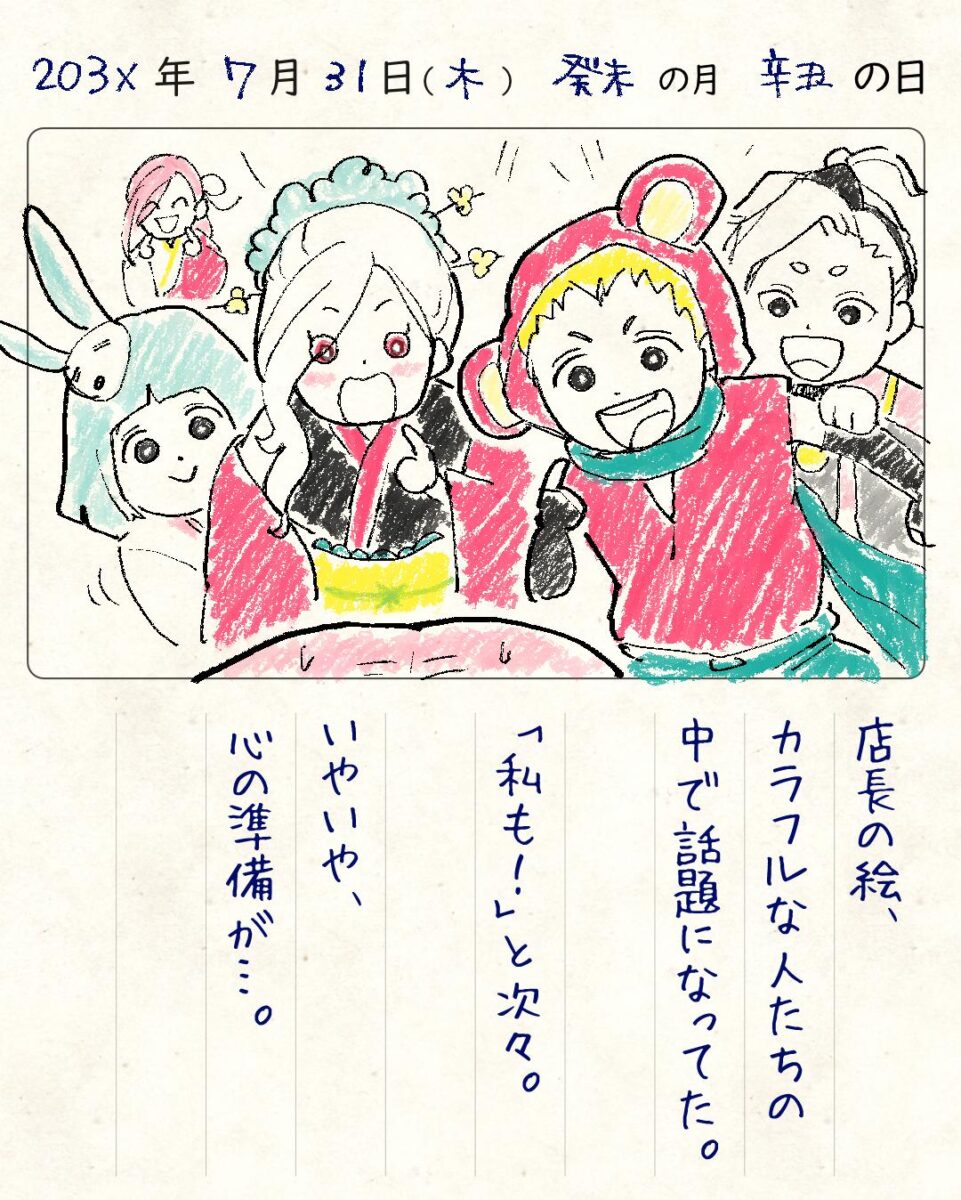 203X年 7月31日(木) 癸未の月 辛丑の日
店長の絵、
カラフルな人たちの
中で話題になってた。
「私も!」と次々。
いやいや、
心の準備が…。